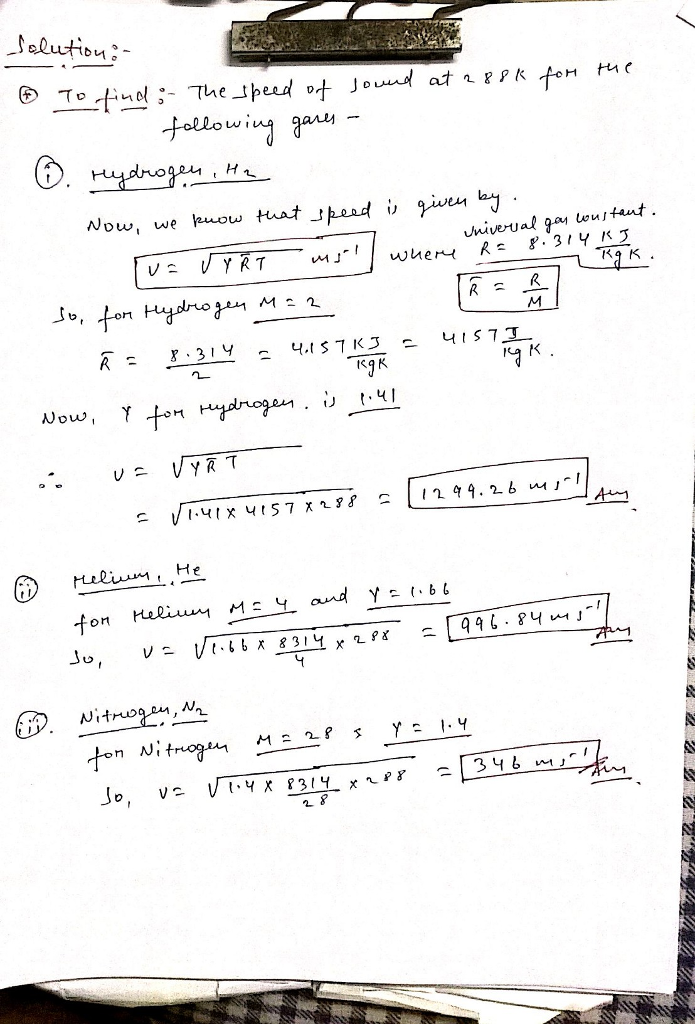 Solution :-
* To find :- The speed of sound at 288K for the
following gases -
(i). Hydrogen, H2
Now, we know that speed is given by.
universal gas constant.
V = √γR̄T ms⁻¹ where R = 8.314 KJ/KgK.
So, for Hydrogen M = 2 R̄ = R/M
R̄ = 8.314/2 = 4.157 KJ/KgK = 4157 J/KgK.
Now, γ for Hydrogen. is 1.41
∴ V = √γR̄T
= √1.41 x 4157 x 288 = 1299.26 ms⁻¹ Ans
(ii) Helium, He
for Helium M = 4 and γ = 1.66
So, V = √1.66 x 8314/4 x 288 = 996.84 ms⁻¹ Ans
(iii). Nitrogen, N2
for Nitrogen M = 28 s γ = 1.4
So, V = √1.4 x 8314/28 x 288 = 346 ms⁻¹ Ans.